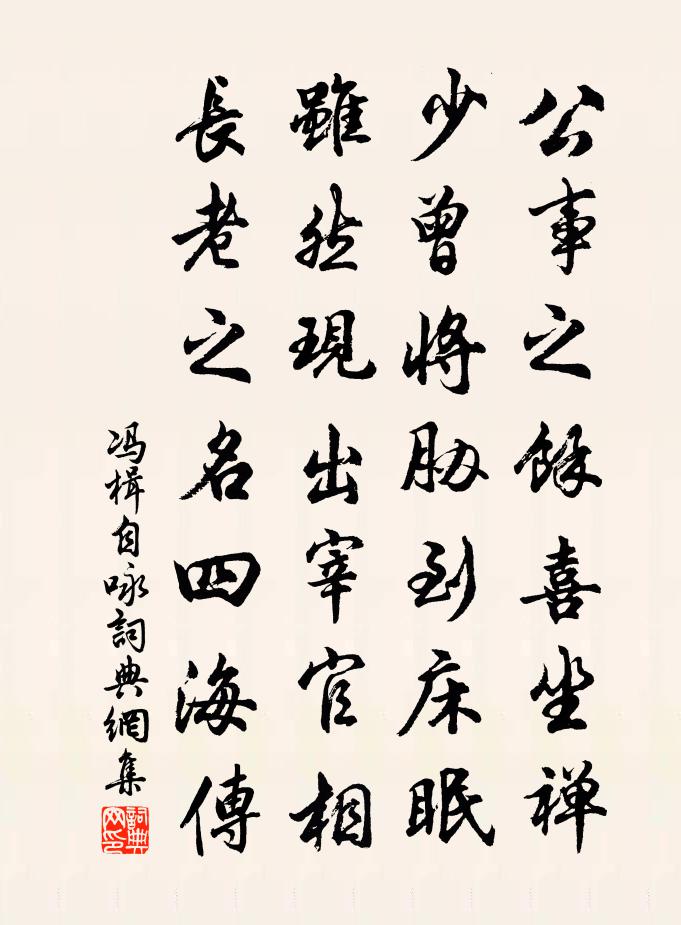 公事之餘喜坐禅
少曾將胁到床眠
雖然現出宰官相
長老之名四海傳
冯楫自咏詞典網集
詞典网印